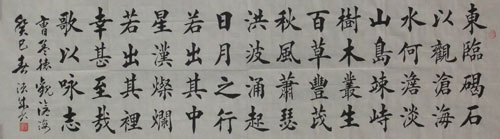 東臨碣石
以觀滄海
水何澹淡
山島竦峙
樹木叢生
百草豐茂
秋風蕭瑟
洪波涌起
日月之行
若出其中
星漢燦爛
若出其裡
幸甚至哉
歌以咏志
曹孟德觀滄海
癸巳春